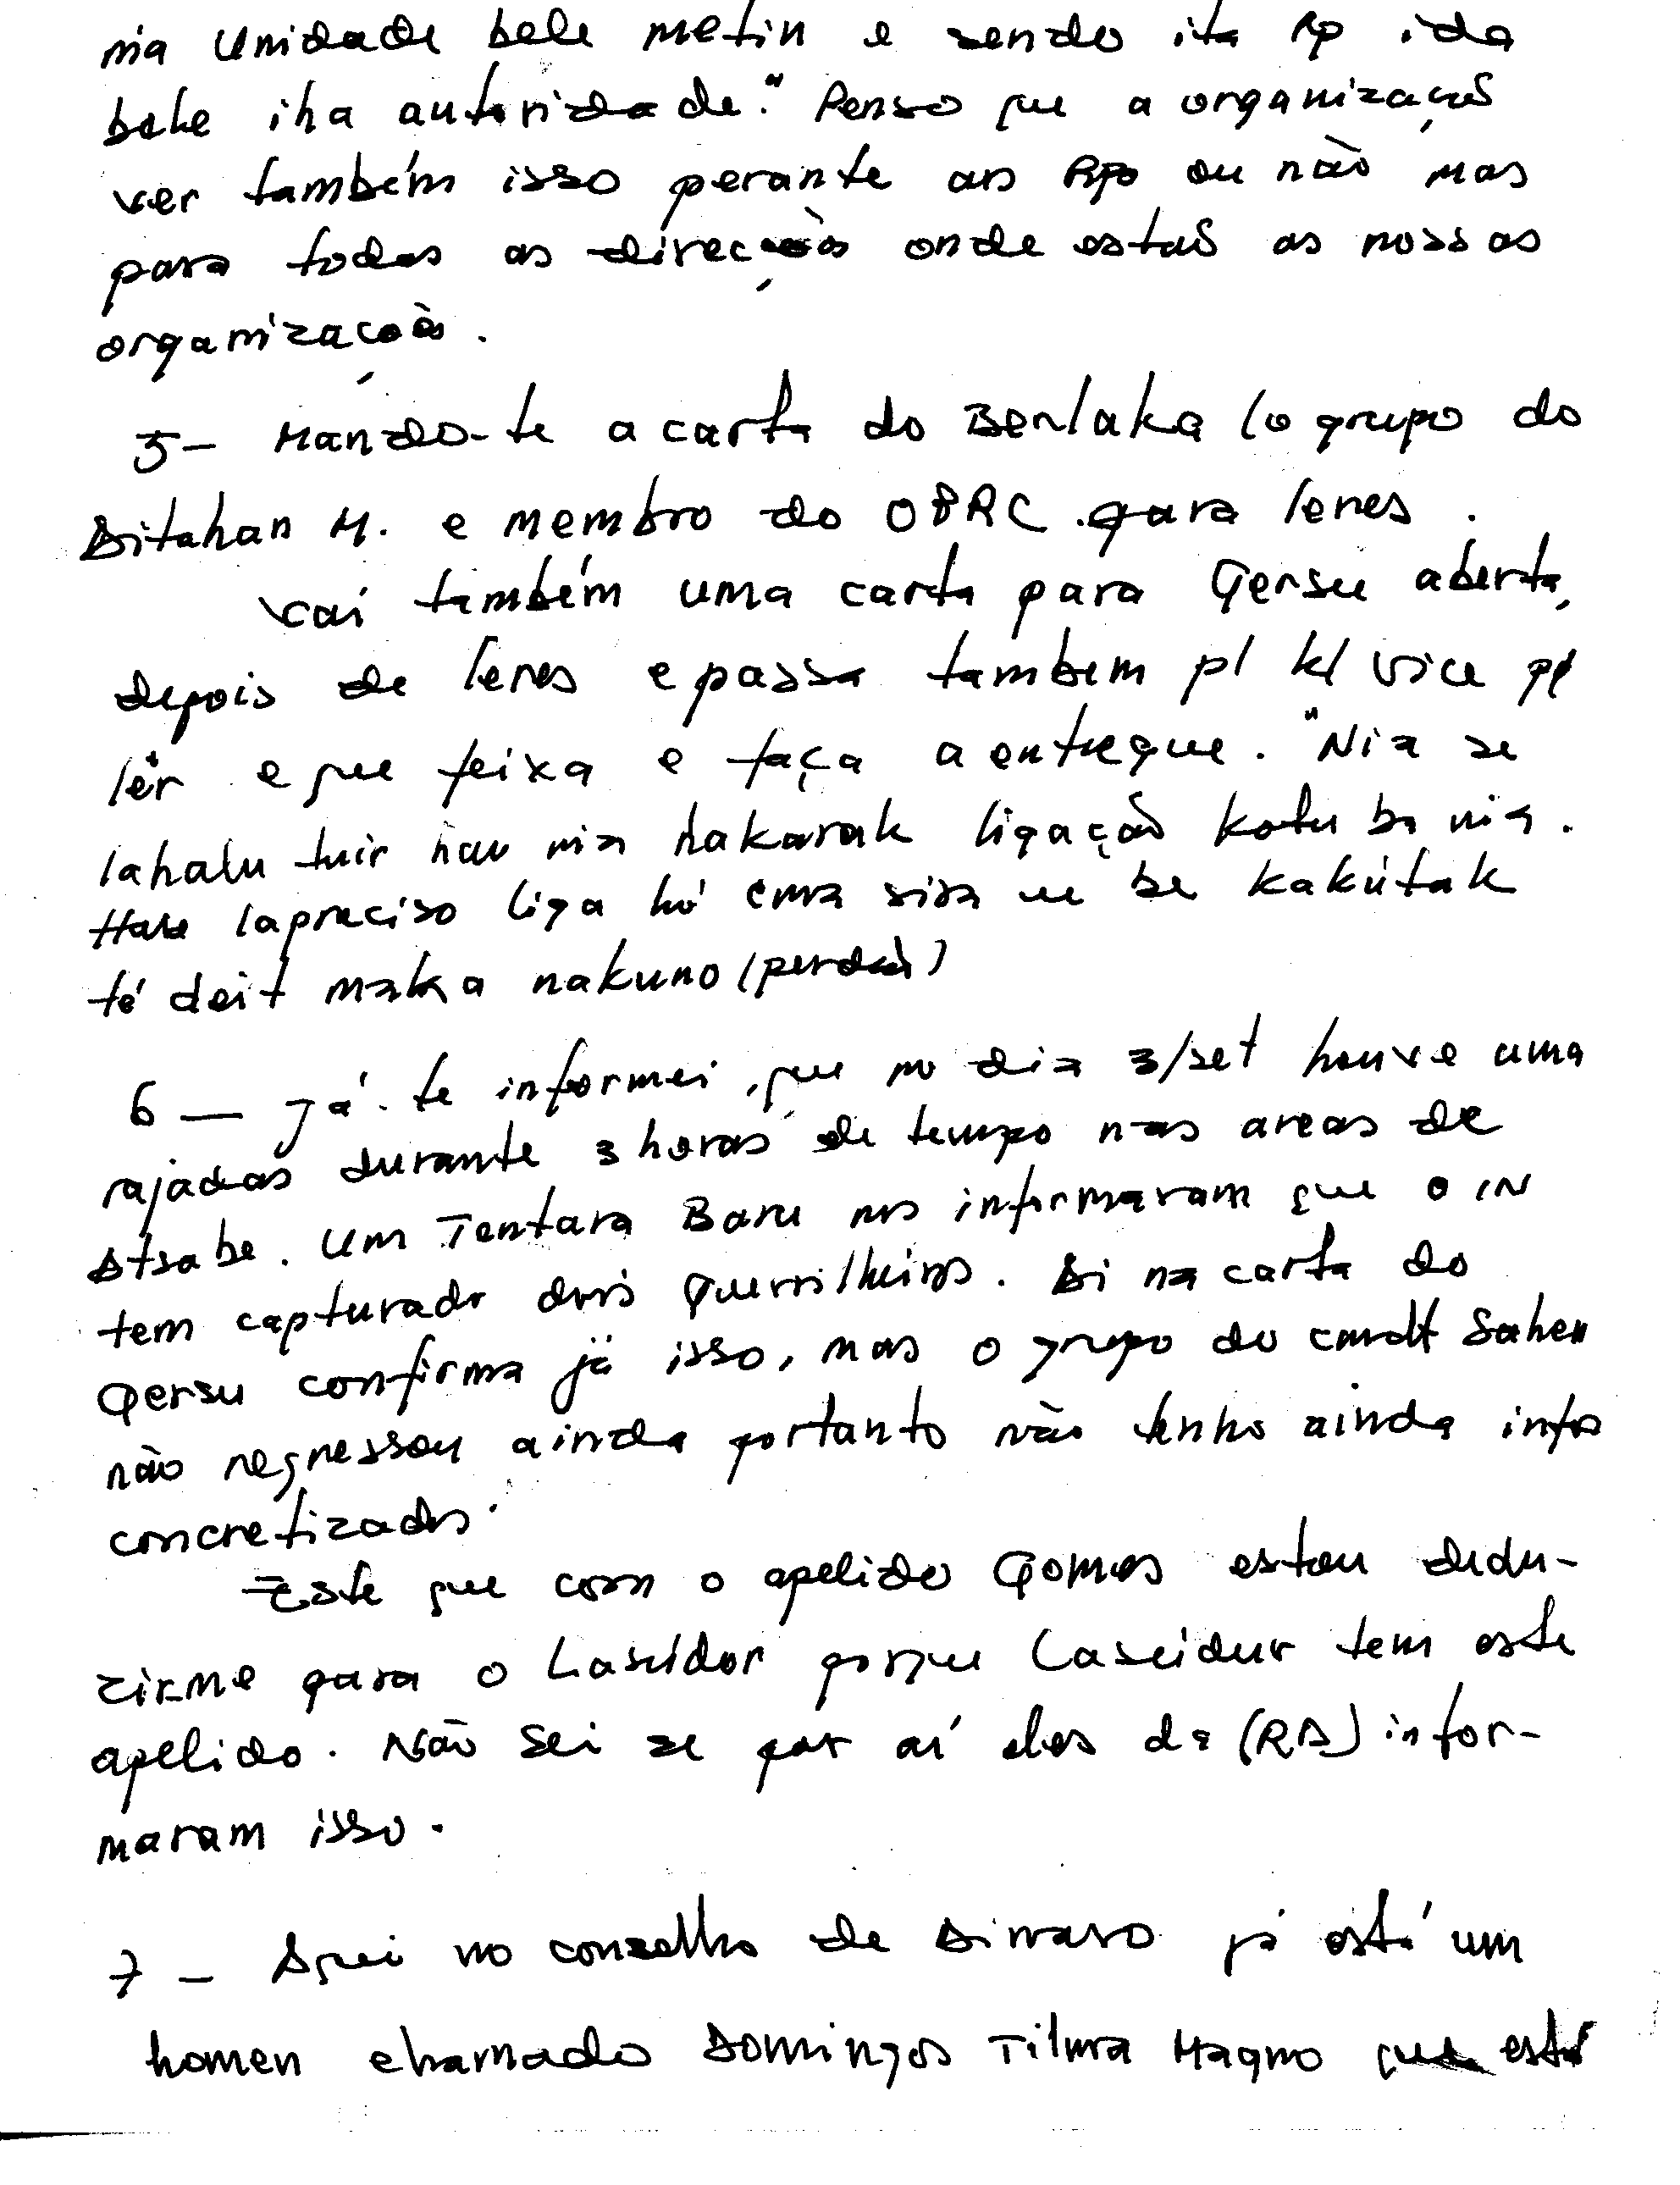 nia Unidade bele metin e sendo ita Rp ida
bele iha autoridade." Penso que a organização
ver também isso perante as Rps ou não mas
para todas as direcções onde estão as nossas
organizações.
5- Mando-te a carta do Berlaka (o grupo do
Aitahan M. e membro do OPRC para leres.
Vai também uma carta para Gersu aberta,
depois de leres e passa tambem p/ k/ Vice p/
lêr e que feixa e faça a entregue. "Nia se
lahalu tuir hau nia hakarak ligação kotu ba nia.
Hau lapreciso liga hó ema sira ne be kakútak
té deit maka nakuno (perdão)
6 — Já te informei, que no dia 3/set houve uma
rajadas durante 3 horas de tempo nas areas de
Atsabe. Um Tentara Baru nos informaram que o IN
tem capturado dois Guerrilheiros. Ai na carta do
Gersu confirma já isso, mas o grupo do cmdt Sahen
não regressou ainda portanto não tenho ainda infos
concretizados.
Este que com o apelido Gomes estou dedu-
zirme para o Laseidor porque Laseidur tem este
apelido. Não sei se por aí eles da (RA) infor-
maram isso.
7 - Aqui no conselho de Airraso já está um
homen chamado Domingos Tilma Magno que está